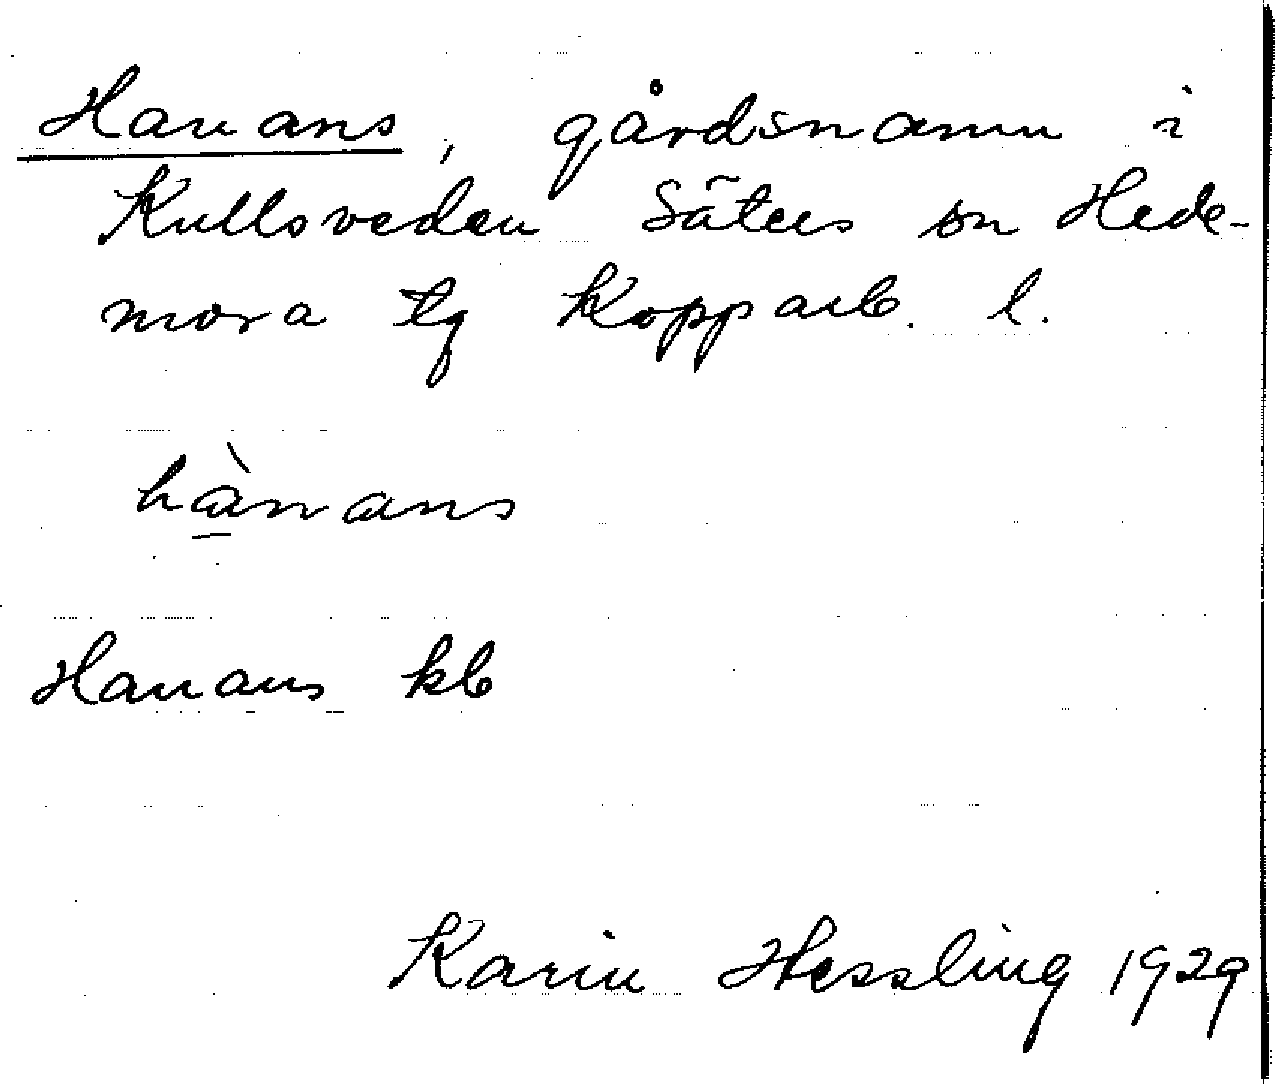 Hanans, gårdsnamn i
Kullsveden Säters sn Hede-
mora tg Kopparb. l.
hànans
Hanans kb
Karin Hessling 1929